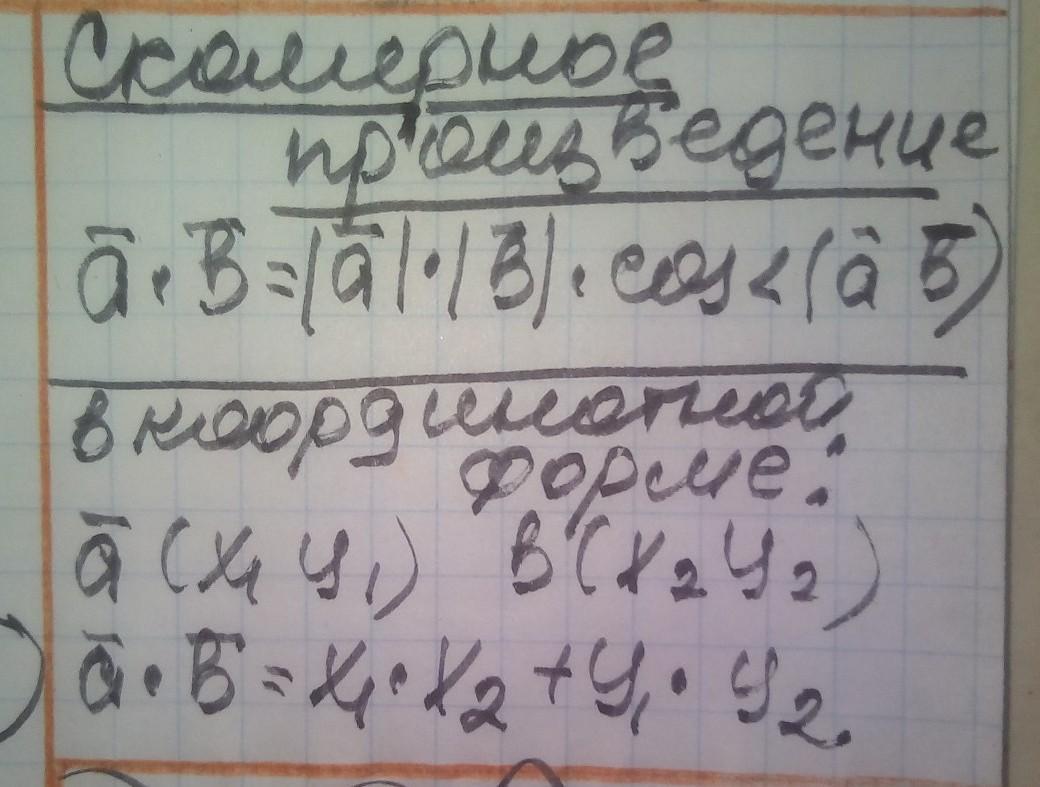 Скалярное
произведение
a̅·b̅=|a̅|·|b̅|·cos<(a̅ b̅)
в координатной
форме:
a̅ (x₁ y₁) b (x₂ y₂)
a̅·b̅=x₁·x₂+y₁·y₂.